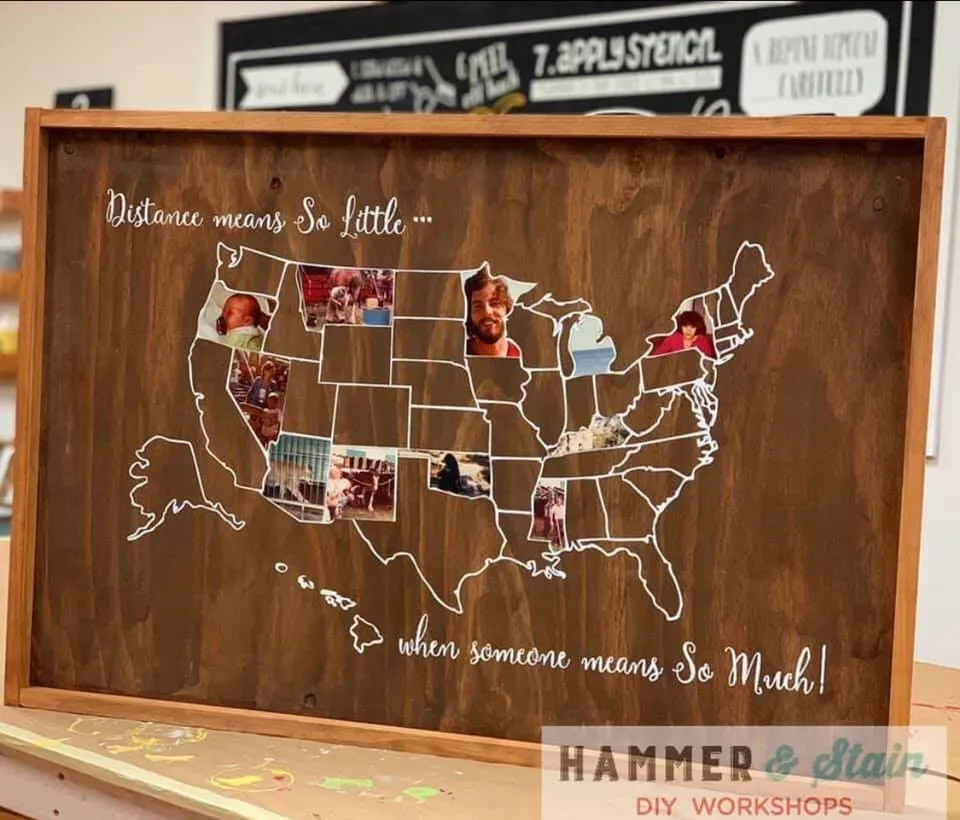 7. APPLY STENCIL
Distance means So Little ...
when someone means So Much!
HAMMER & Stain
DIY WORKSHOPS